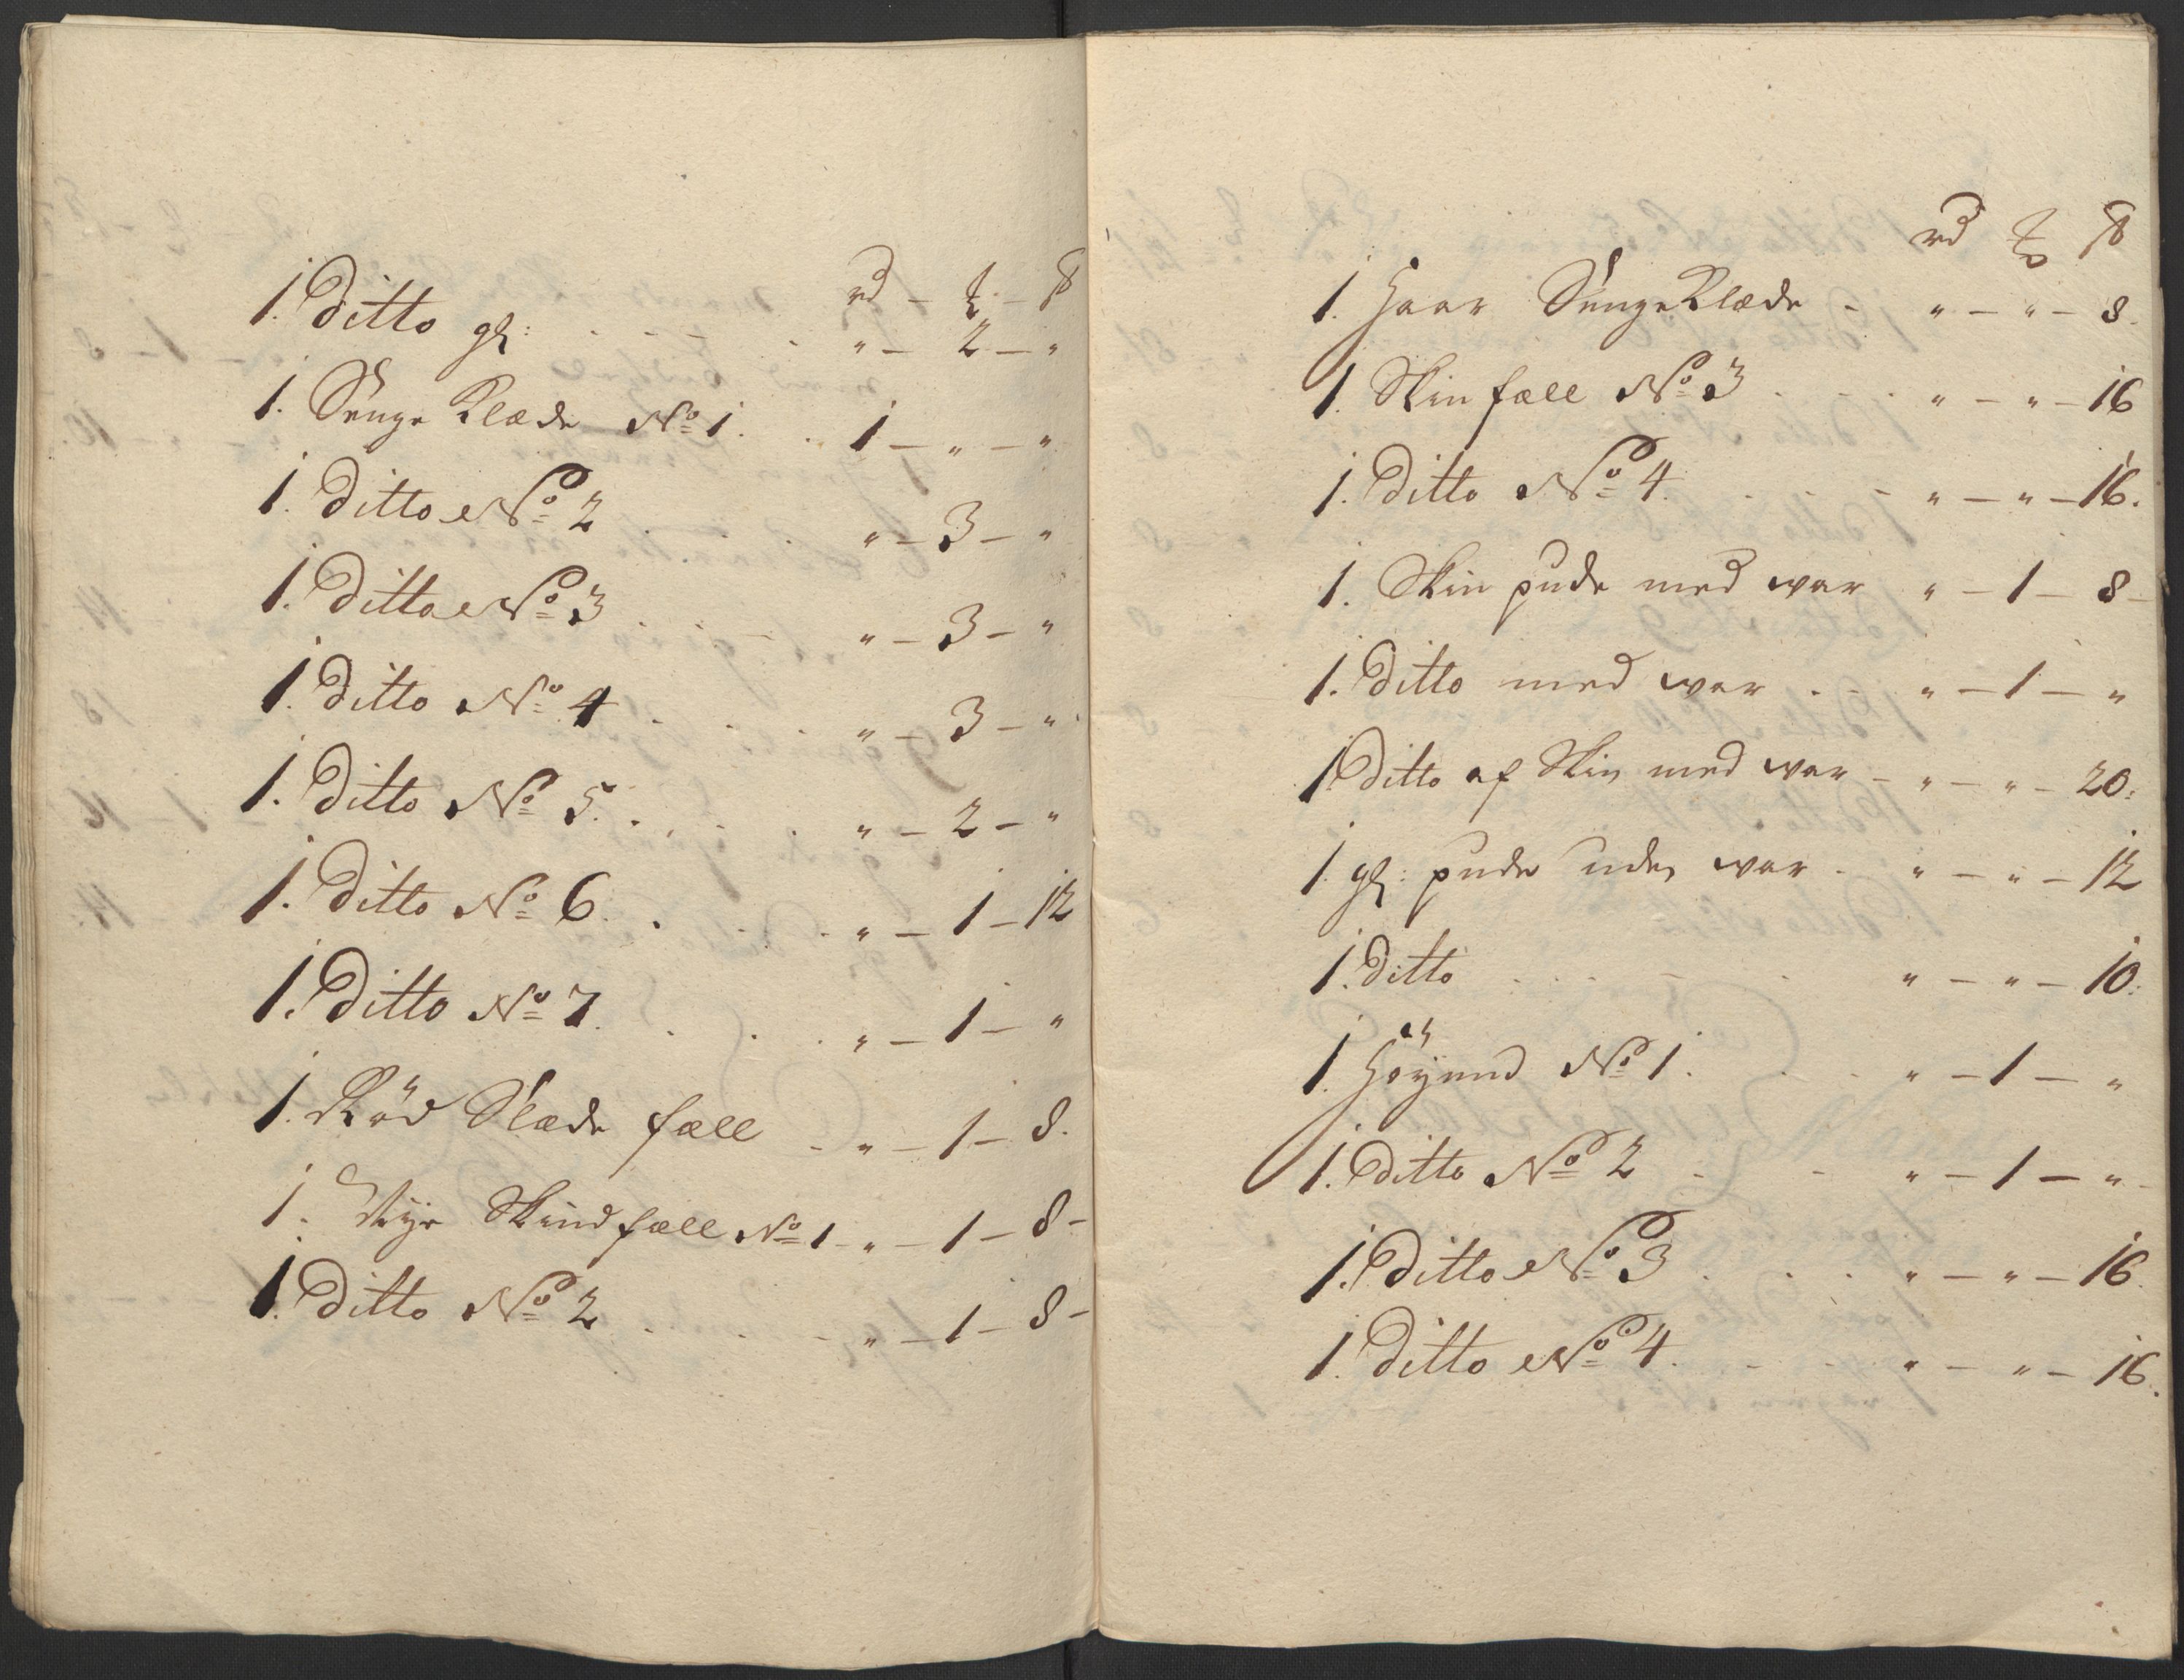 rd – ort – ß
1. Ditto gl: . . . . " – 2 – "
1. Senge Klæde No 1. . 1 – " – "
1. Ditto No 2 . . . " – 3 – "
1. Ditto No 3 . . . " – 3 – "
1. Ditto No 4 . . . " – 3 – "
1. Ditto No 5. . . . " – 2 – "
1. Ditto No 6. . . . " – 1 – 12
1. Ditto No 7. . . . " – 1 – "
1. Röd Slæde fæll – " – 1 – 8.
1. Skind fæll No 1 – " – 1 – 8 –
1. Ditto No 2 . . . " – 1 – 8 –
rd ort ß
1. Haar Senge Klæde – " – " – 8.
1. Skin fæll No 3 . . . " – " – 16
1. Ditto No 4. . . . " – " – 16.
1. Skin pude med war " – 1 – 8 –
1. Ditto med war . – " – 1 – "
1 Ditto af Skin med war – " – " – 20:
1. gl: pude uden war . " – " – 12
1. Ditto . . . – . " – " – 10.
1. Höyend No 1. . . " – 1 – "
1. Ditto No 2 . . " – 1 – " –
1. Ditto No 3 . . . " – " – 16.
1. Ditto No 4. . . . " – " – 16.